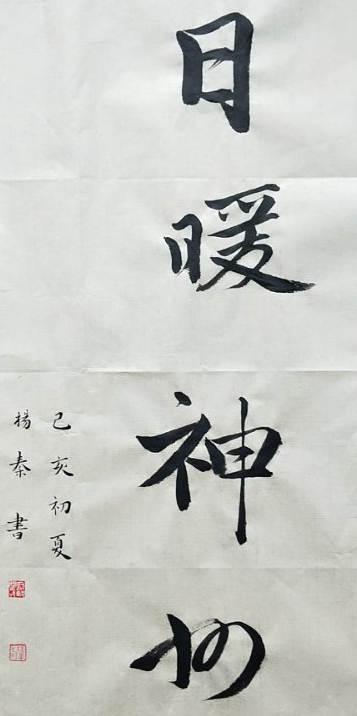 日暖神州
己亥初夏
楊秦書